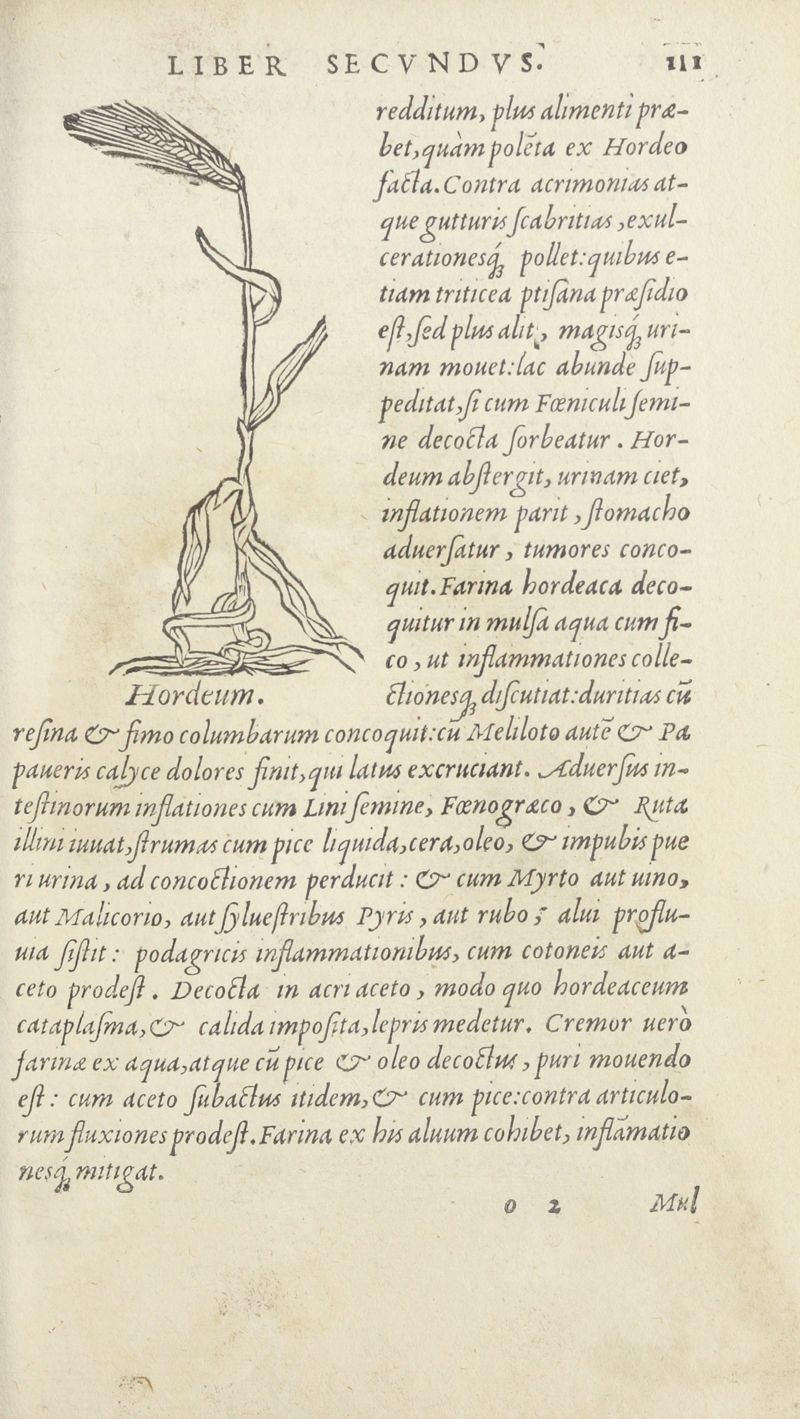 LIBER SECVNDVS. 111
redditum, plus alimenti præ-
bet, quàm polēta ex Hordeo
facta. Contra acrimonias at-
que gutturis ſcabritias, exul-
cerationesq́ꝫ pollet: quibus e-
tiam triticea ptiſana præſidio
eſt, ſed plus alit, magisq́ꝫ uri-
nam mouet: lac abunde ſup-
peditat, ſi cum Fœniculi ſemi-
ne decocta ſorbeatur. Hor-
deum abſtergit, urinam ciet,
inflationem parit, ſtomacho
aduerſatur, tumores conco-
quit. Farina hordeacea deco-
quitur in mulſa aqua cum fi-
co, ut inflammationes colle-
Hordeum.
ctionesq́ꝫ diſcutiat: duritias cū
reſina & fimo columbarum concoquit: cū Meliloto autē & Pa
paueris calyce dolores finit, qui latus excruciant. Aduerſus in-
teſtinorum inflationes cum Lini ſemine, Fœnogræco, & Ruta
illini iuuat, ſtrumas cum pice liquida, cera, oleo, & impubis pue
ri urina, ad concoctionem perducit: & cum Myrto aut uino,
aut Malicorio, aut ſylueſtribus Pyris, aut rubo; alui proflu-
uia ſiſtit: podagricis inflammationibus, cum cotoneis aut a-
ceto prodeſt. Decocta in acri aceto, modo quo hordeaceum
cataplaſma, & calida impoſita, lepris medetur. Cremor uerò
farinæ ex aqua, atque cū pice & oleo decoctus, puri mouendo
eſt: cum aceto ſubactus itidem, & cum pice: contra articulo-
rum fluxiones prodeſt. Farina ex his aluum cohibet, inflāmatio
nesq́ꝫ mitigat.
o 2 Mul